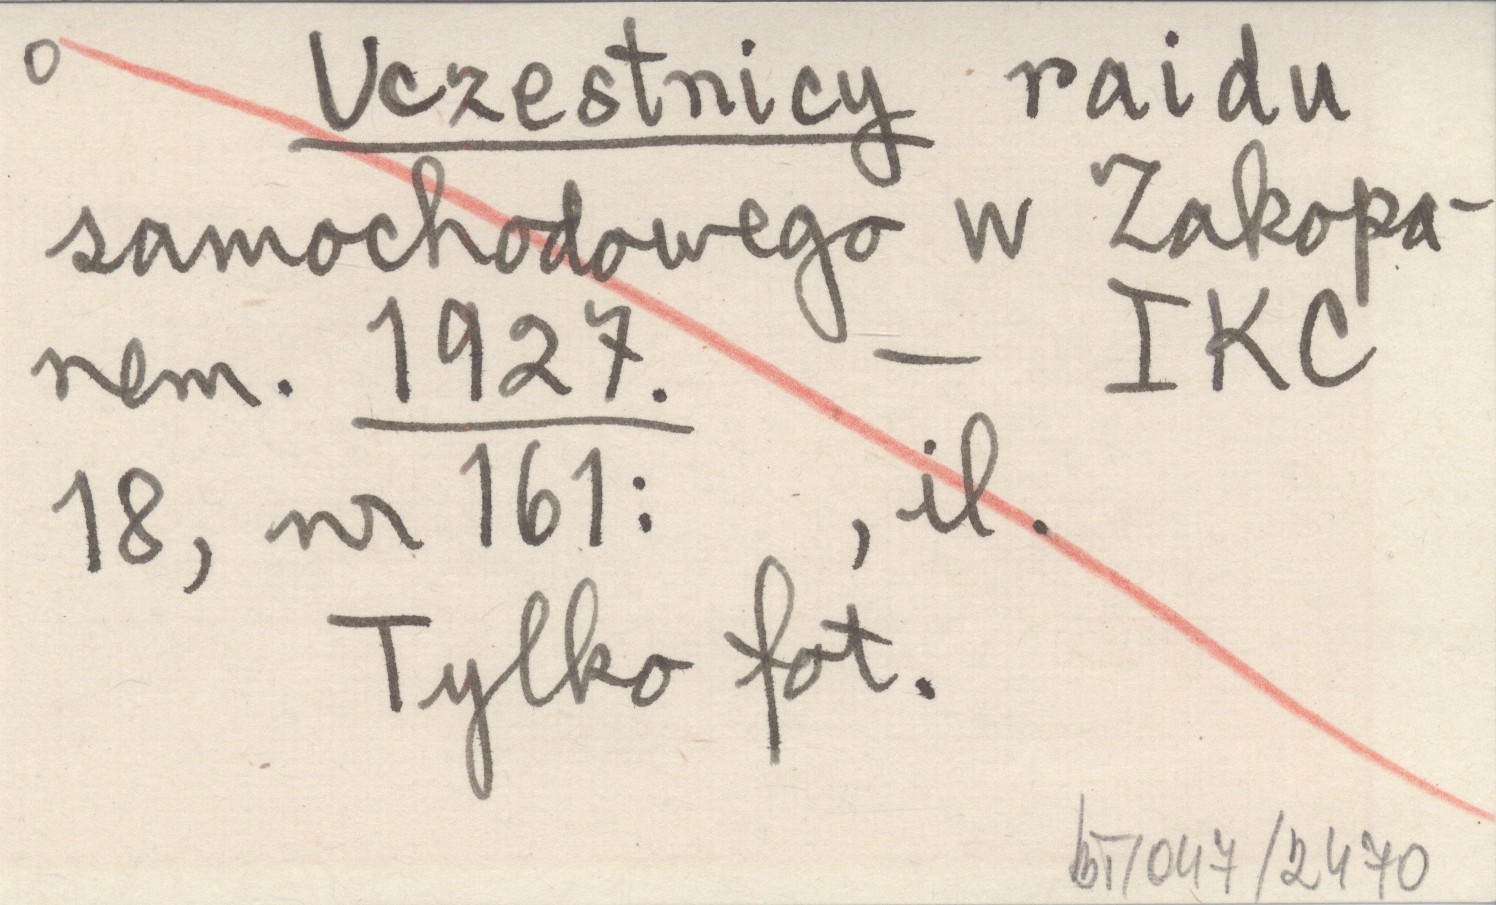 o Uczestnicy raidu
samochodowego w Zakopa-
nem. 1927. — IKC
18, nr 161: , il.
Tylko fot.
bT/047/2470